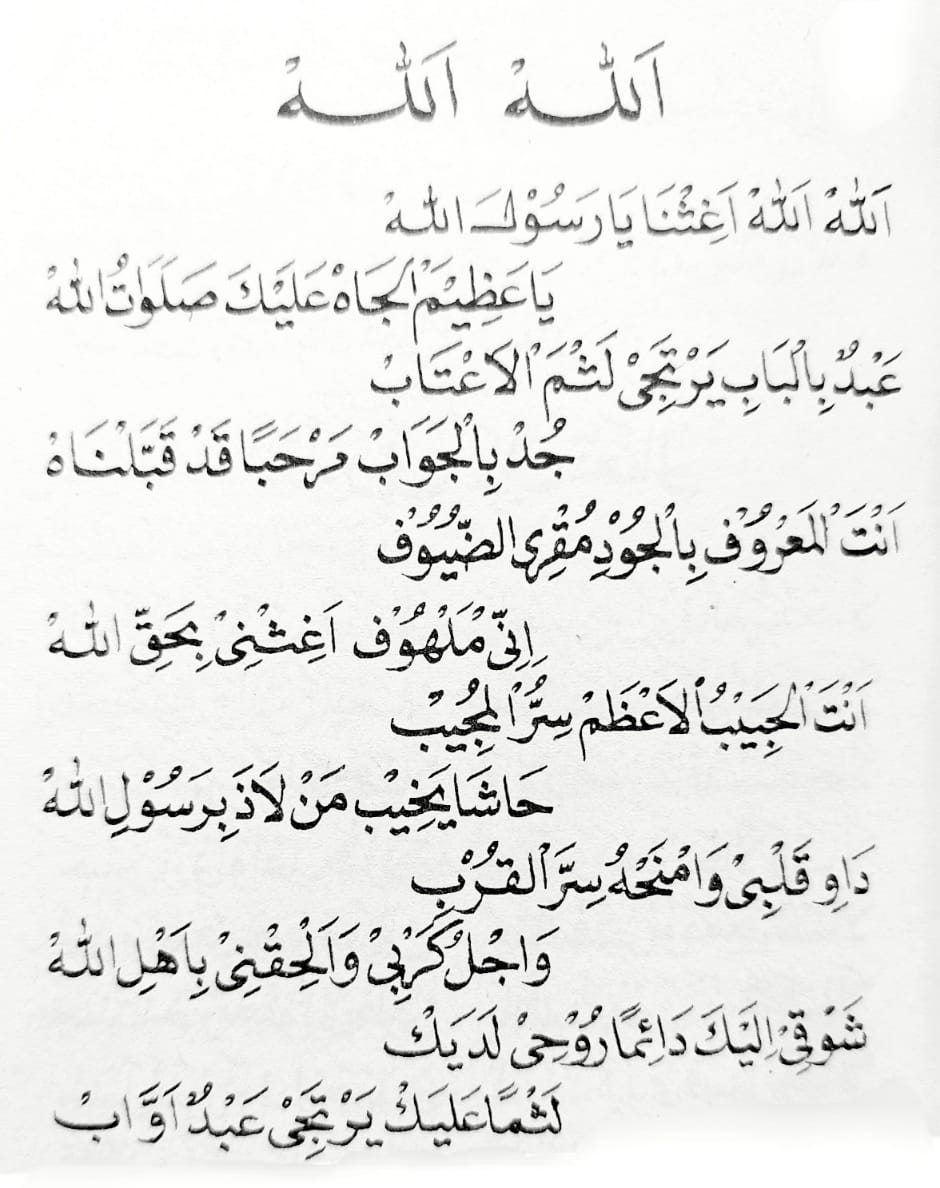 اَللّٰهْ اَللّٰهْ
اَللّٰهْ اَللّٰهْ اَغِثْنَا يَا رَسُوْلَ اللّٰهْ
يَا عَظِيْمَ الْجَاهْ عَلَيْكَ صَلَوَاتُ اللّٰهْ
عَبْدٌ بِالْبَابِ يَرْتَجِىْ لَثْمَ الْاَعْتَابْ
جُدْ بِالْجَوَابْ مَرْحَبًا قَدْ قَبَّلْنَاهْ
اَنْتَ الْمَعْرُوْفْ بِالْجُوْدِ مُقْرِى الضُّيُوْفْ
اِنِّىْ مَلْهُوْفْ اَغِثْنِىْ بِحَقِّ اللّٰهْ
اَنْتَ الْحَبِيْبُ الْاَعْظَمْ سِرُّ الْمُجِيْبْ
حَاشَا يَخِيْبْ مَنْ لَاذَ بِرَسُوْلِ اللّٰهْ
دَاوِ قَلْبِىْ وَامْنَحْهُ سِرَّ الْقُرْبِ
وَاجْلُ كَرْبِىْ وَاَلْحِقْنِىْ بِاَهْلِ اللّٰهْ
شَوْقِىْ اِلَيْكَ دَائِمًا رُوْحِىْ لَدَيْكْ
لَثْمًا عَلَيْكْ يَرْتَجِىْ عَبْدٌ اَوَّابْ